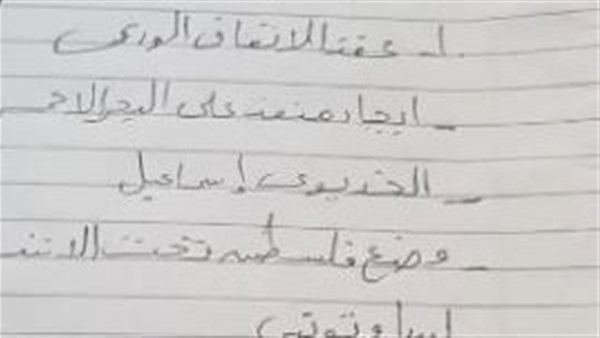 1- عقد الاتفاق الودى
- ايجاد منفذ على البحر الاحمـ
- الخديوى إسماعيل
- وضع فلسطين تحت الانتد